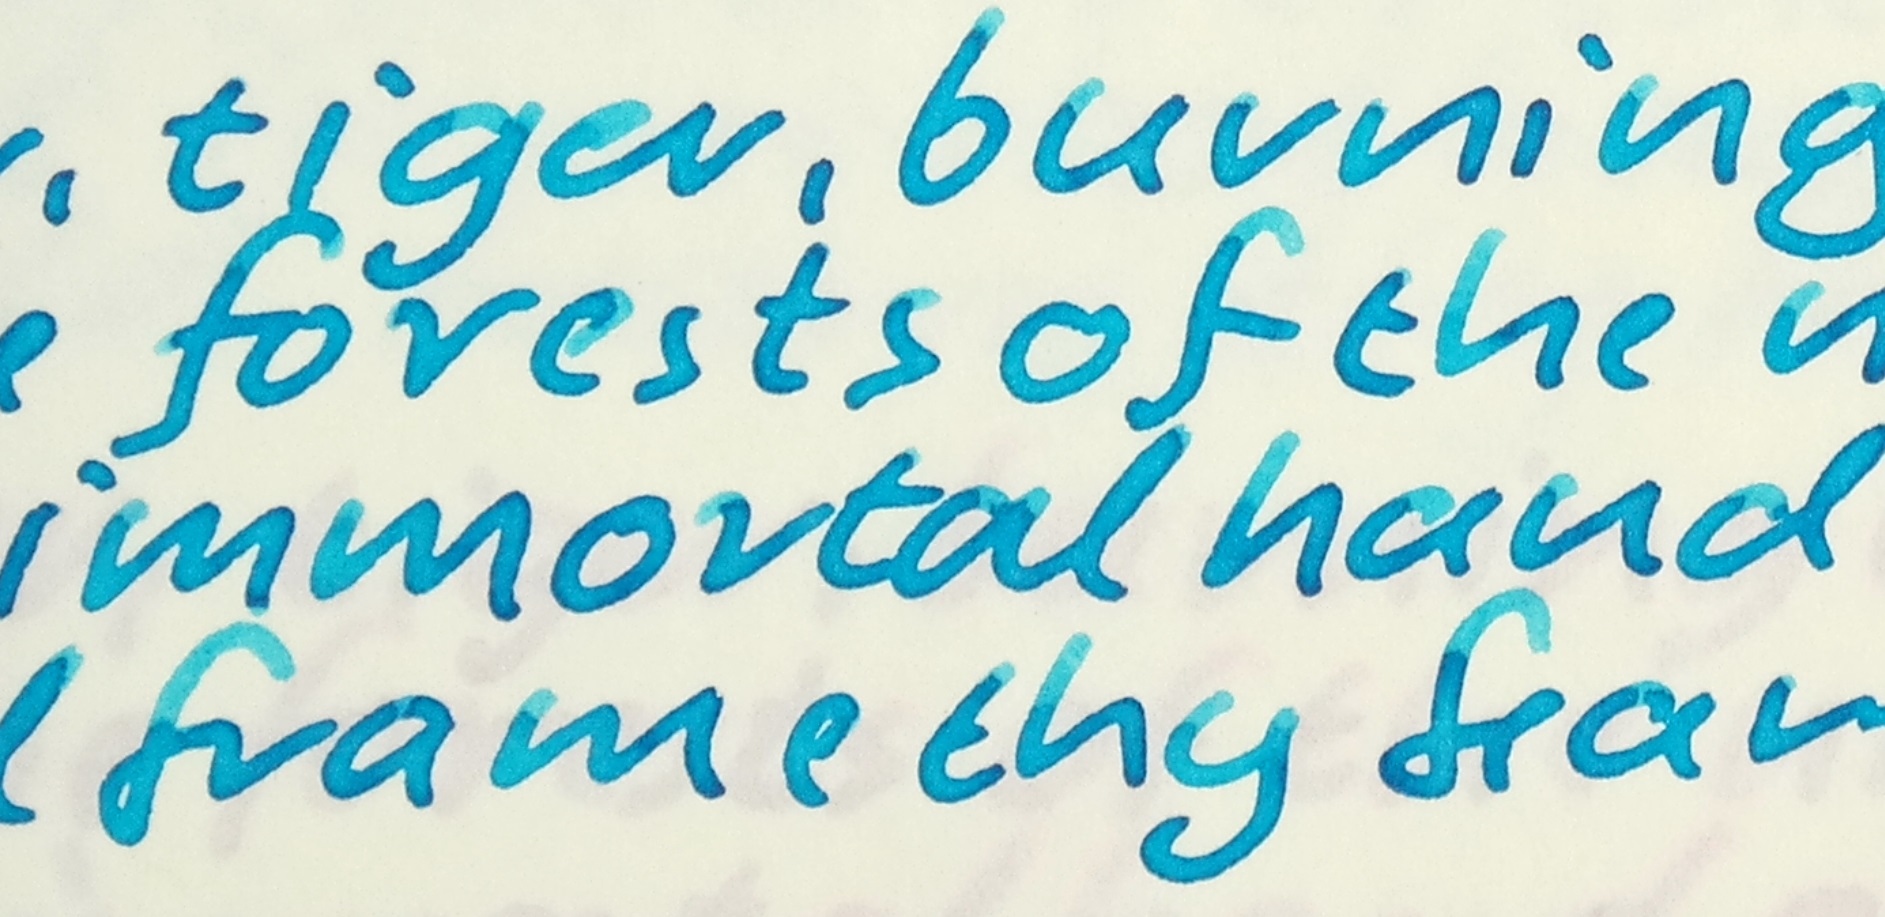 r, tiger, burning
e forests of the n
immortal hand
l frame thy fram